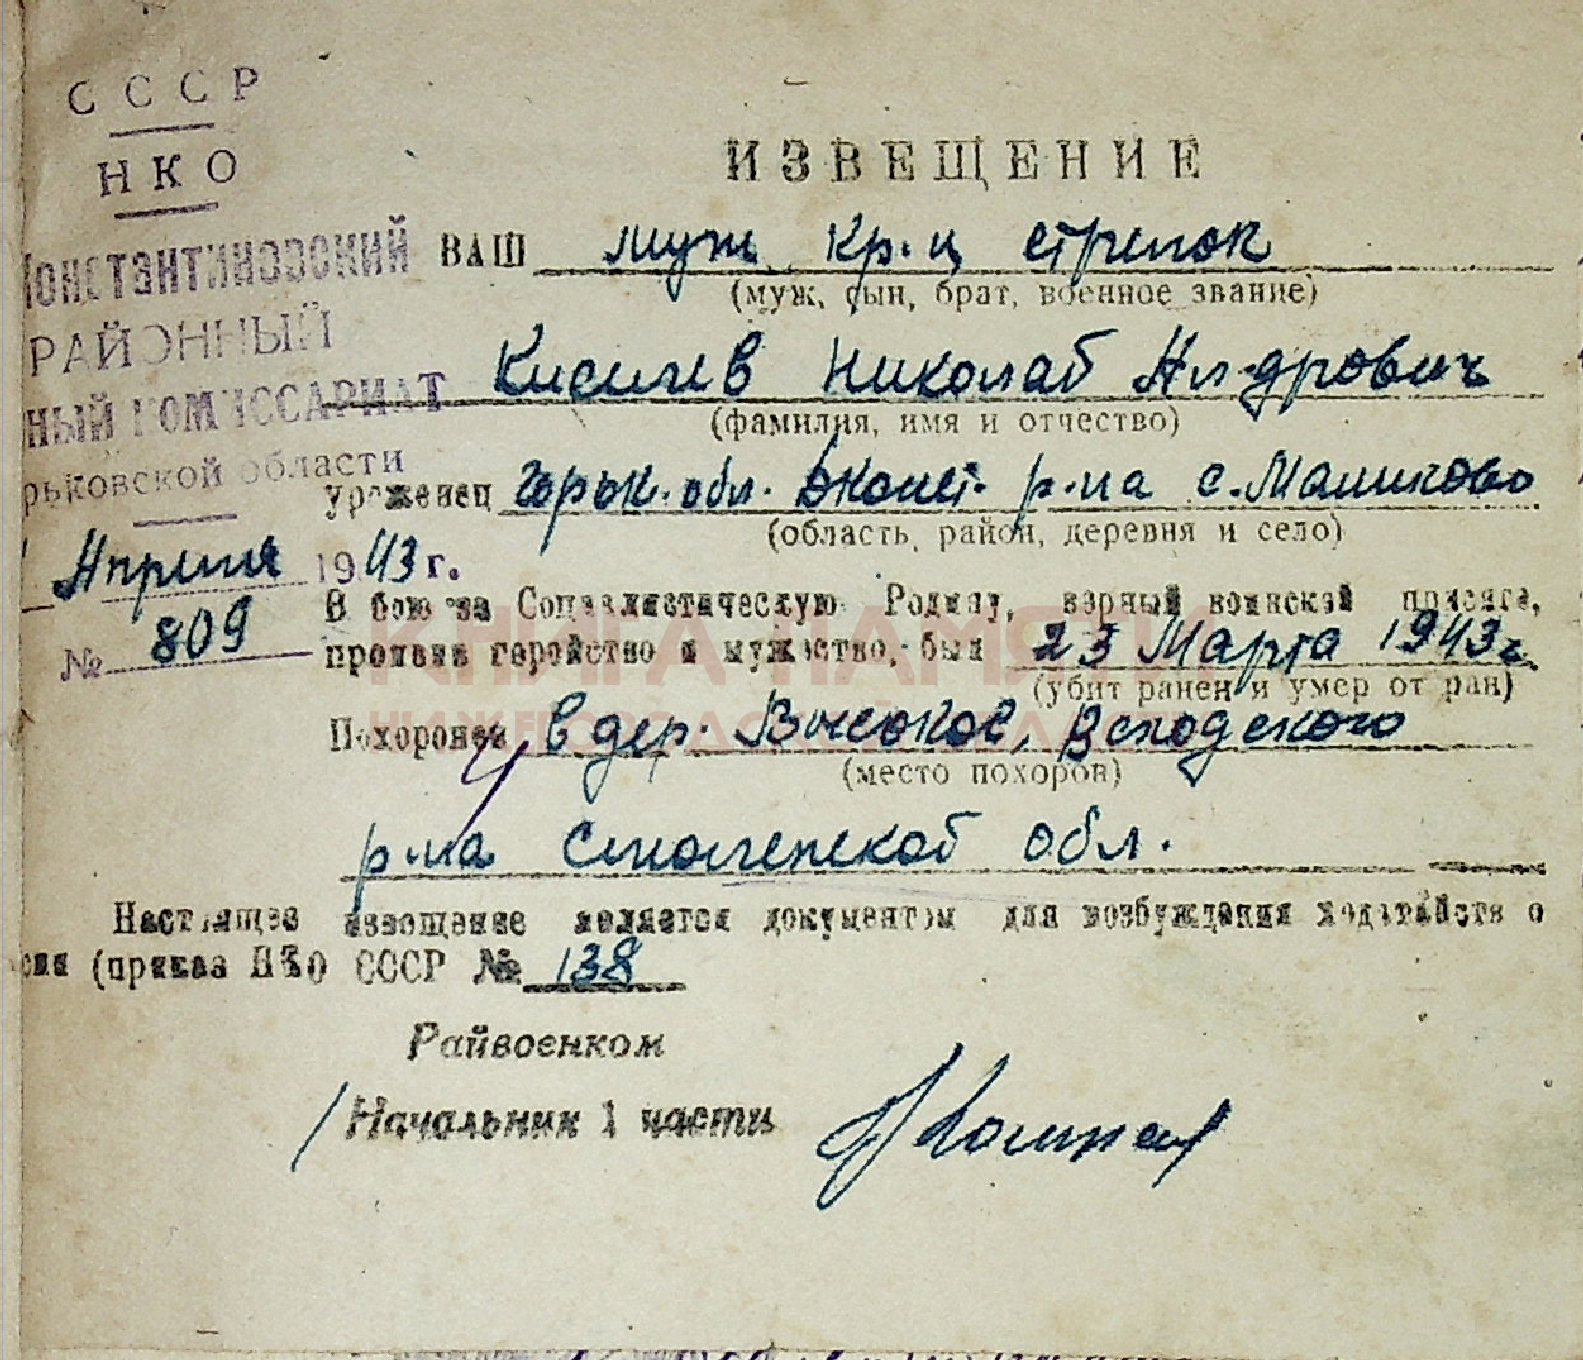 СССР
НКО
Константиновский
РАЙОННЫЙ
ный КОМИССАРИАТ
рьковской области
Апреля 1943 г.
№ 809
ИЗВЕЩЕНИЕ
ВАШ муж кр-ц стрелок
(муж, сын, брат, военное звание)
Киселев Николай Ал-дрович
(фамилия, имя и отчество)
уроженец Горьк. обл. Дконст. р-на с.
(область, район, деревня и село)
В бою за Социалистическую Родину, верный воинской присяге,
проявив геройство и мужество, был 23 Марта 1943 г.
(убит ранен и умер от ран)
Похоронен в дер. Высокое, Всходского
(место похорон)
р-на Смоленской обл.
Настоящее извещение является документом для возбуждения ходатайств о
сии (приказ НКО СССР № 138
Райвоенком
Начальник 1 части
КНИГА ПАМЯТИ
НИЖЕГОРОДСКОЙ ОБЛАСТИ